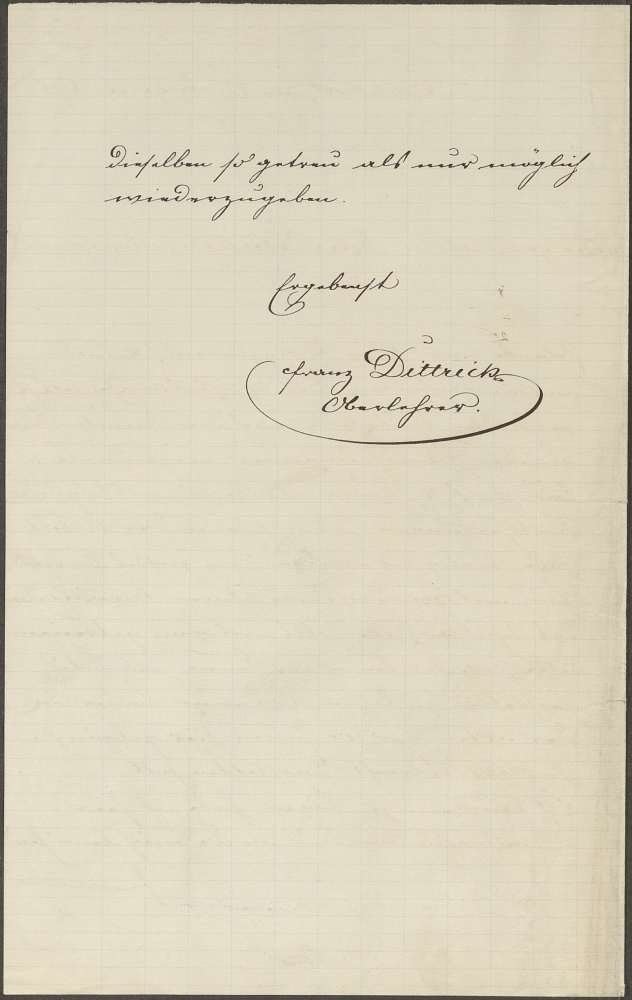 dieselben so getreu als nur möglich
wiederzugeben.
Ergebenst
Franz Dittrich
Oberlehrer.